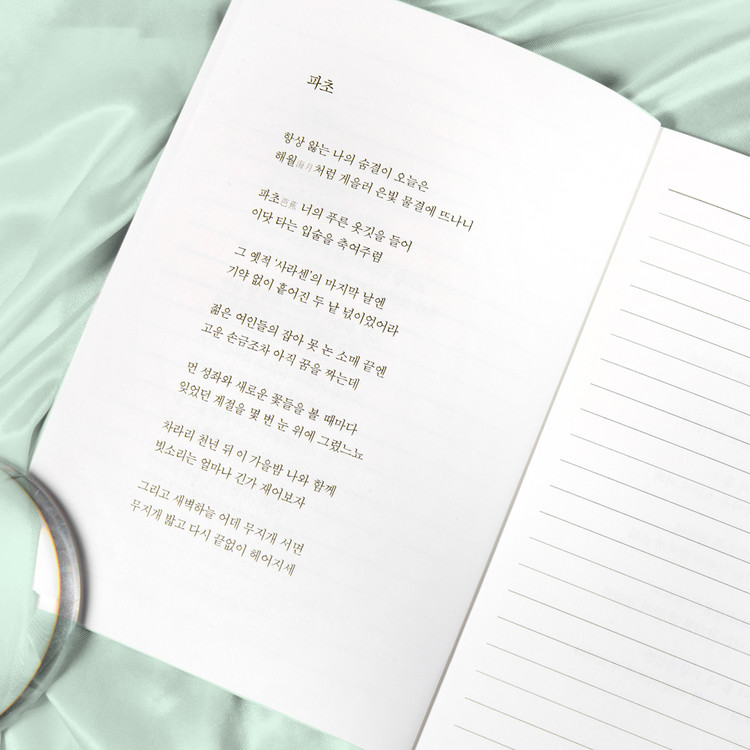 파초
항상 앓는 나의 숨결이 오늘은
해월海月처럼 게을러 은빛 물결에 뜨나니
파초芭蕉 너의 푸른 옷깃을 들어
이닷 타는 입술을 축여주렴
그 옛적 ‘사라센’의 마지막 날엔
기약 없이 흩어진 두 낱 넋이었어라
젊은 여인들의 잡아 못 논 소매 끝엔
고운 손금조차 아직 꿈을 짜는데
먼 성좌와 새로운 꽃들을 볼 때마다
잊었던 계절을 몇 번 눈 위에 그렸느뇨
차라리 천년 뒤 이 가을밤 나와 함께
빗소리는 얼마나 긴가 재어보자
그리고 새벽하늘 어데 무지개 서면
무지개 밟고 다시 끝없이 헤어지세